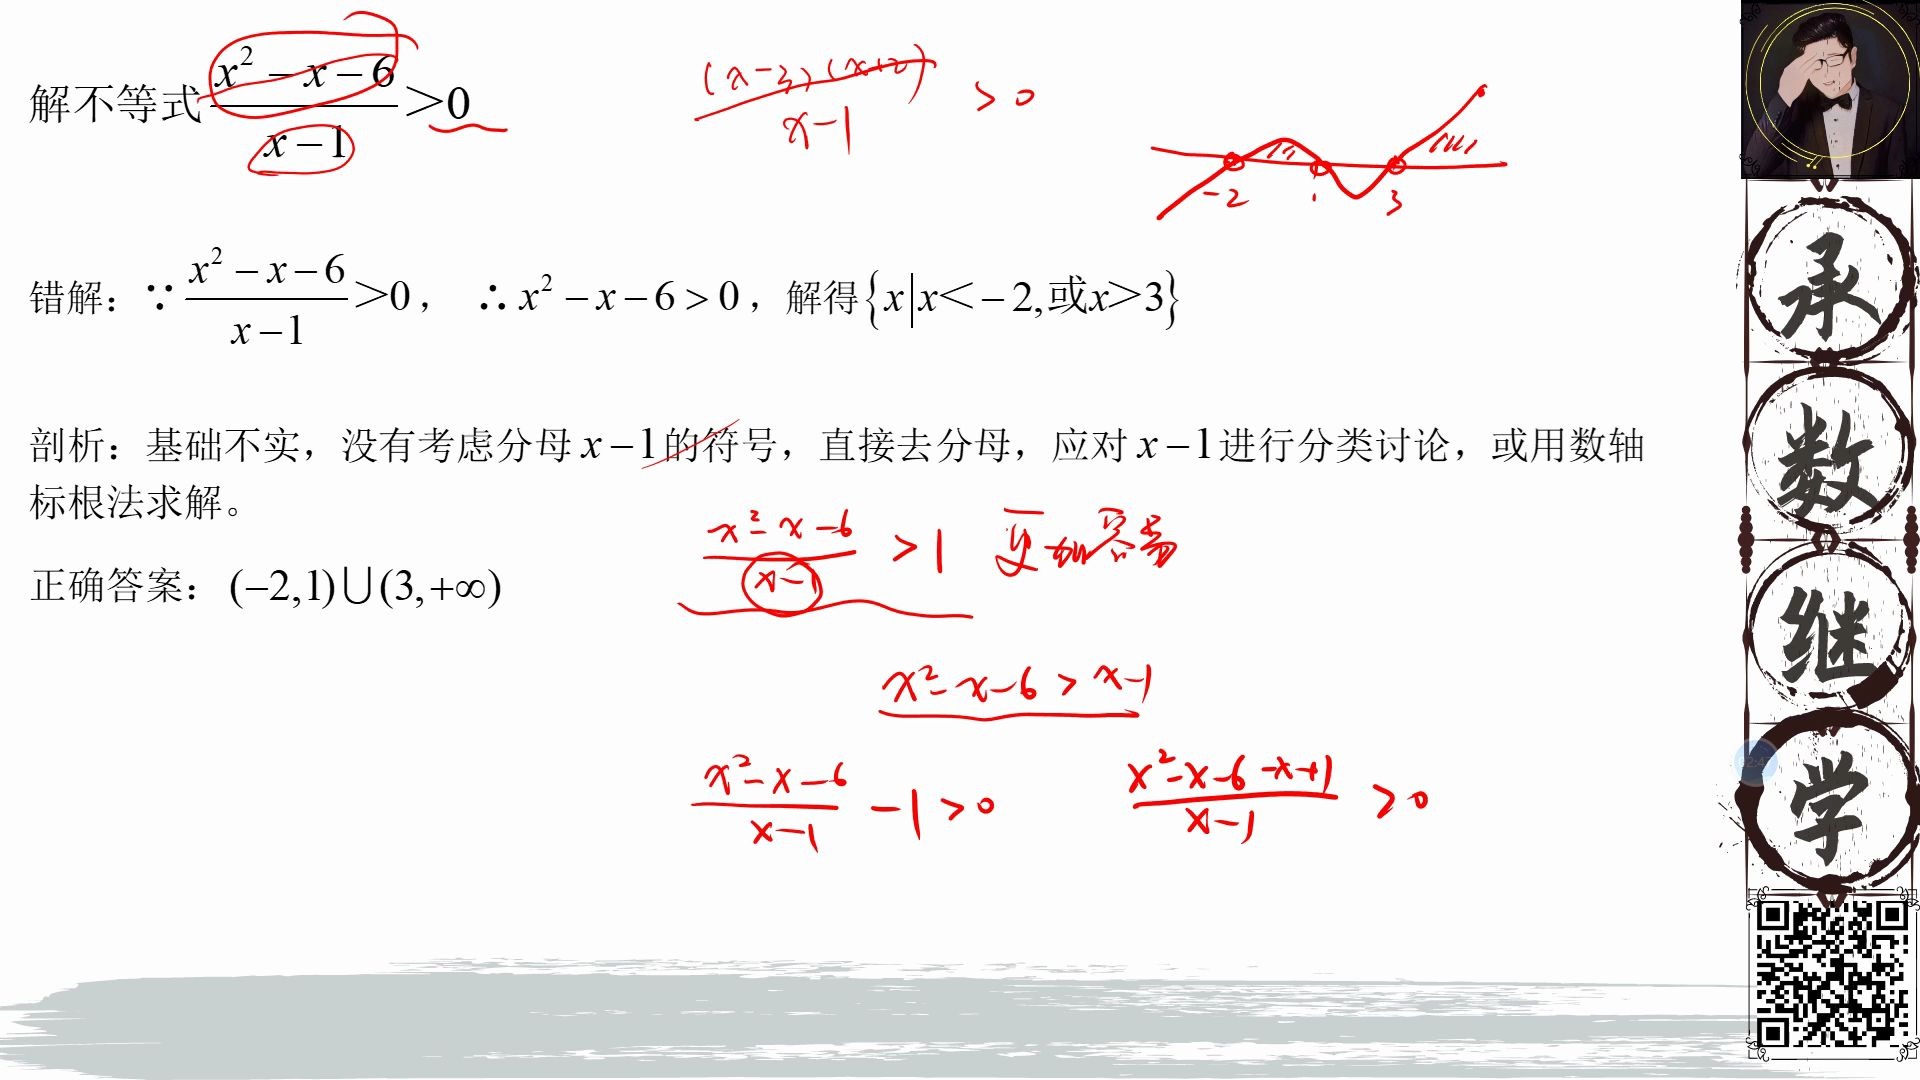 解不等式 (x²-x-6)/(x-1)>0
(x-3)(x+2)/(x-1) >0
-2 1 3
错解：∵(x²-x-6)/(x-1)>0， ∴x²-x-6>0，解得{x|x<-2,或x>3}
剖析：基础不实，没有考虑分母x-1的符号，直接去分母，应对x-1进行分类讨论，或用数轴
标根法求解。
(x²-x-6)/(x-1) >1 更加容易
正确答案：(-2,1)∪(3,+∞)
x²-x-6>x-1
(x²-x-6)/(x-1) -1>0
(x²-x-6-x+1)/(x-1) >0
承
数
继
学